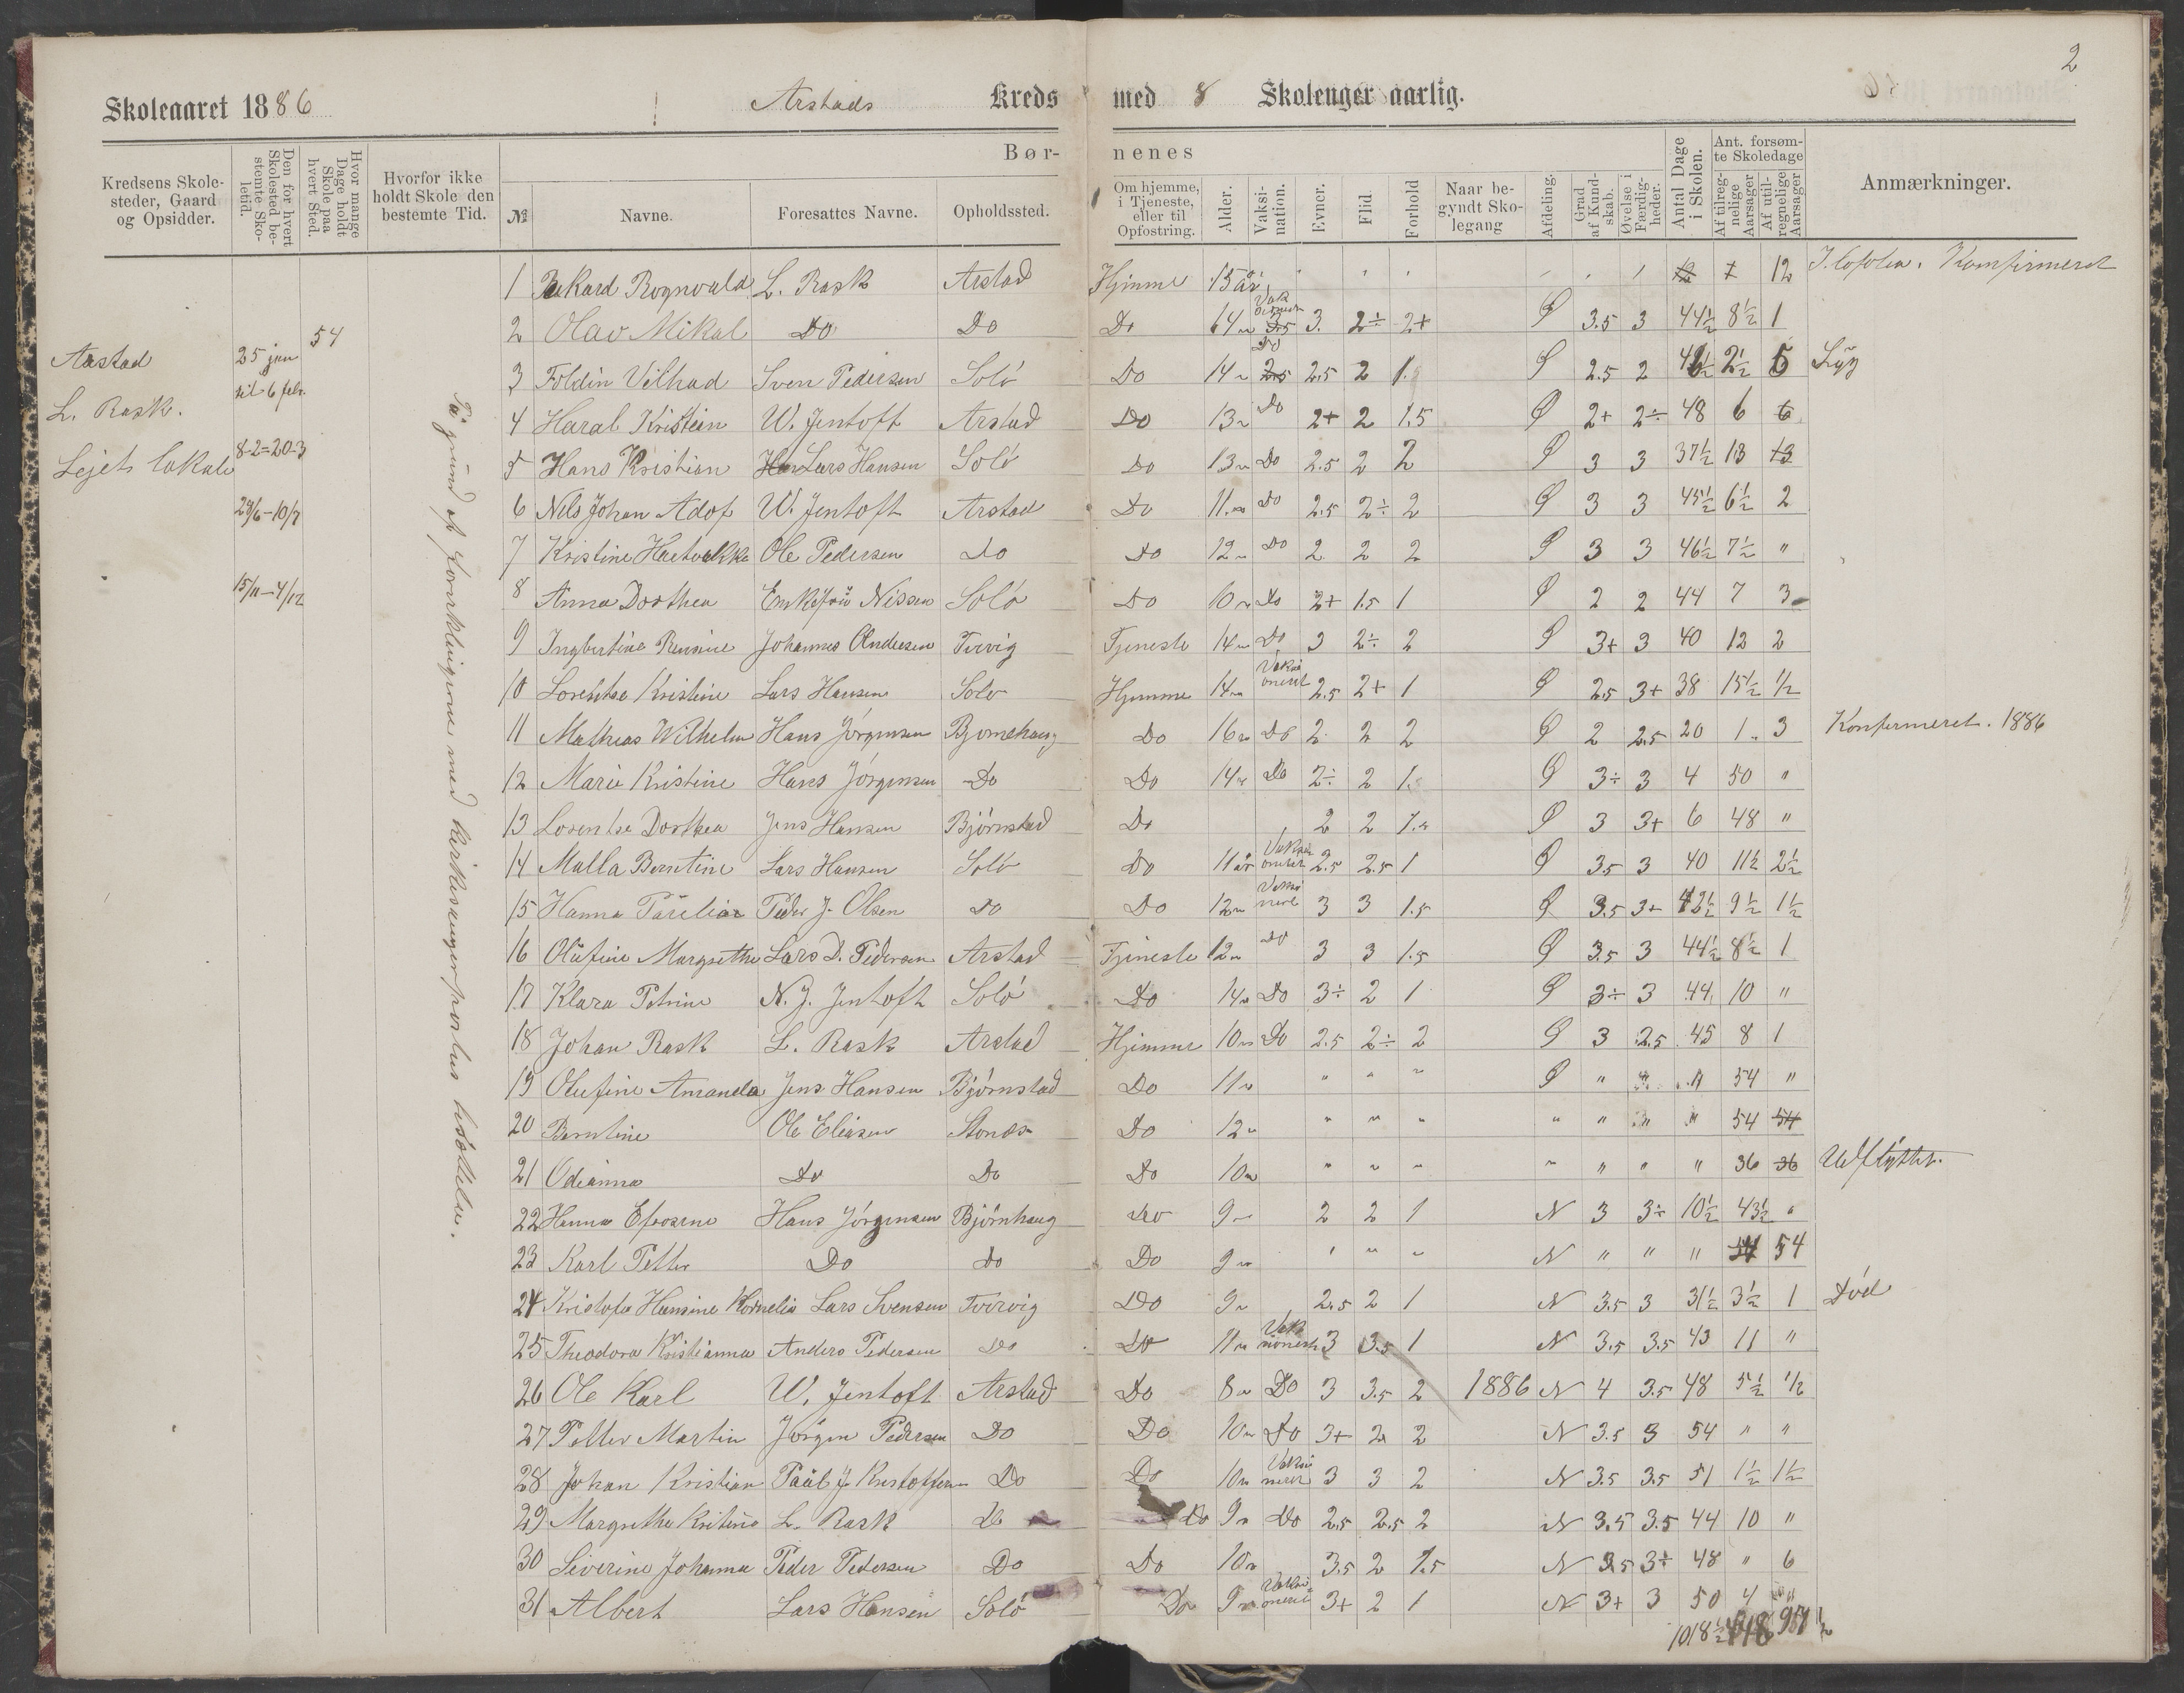 2
Skoleaaret 1886 Arstads Kreds med 8 Skoleuger aarlig.
Kredsens Skolesteder, Gaard og Opsidder.
Den for hvert Skolested bestemte Skoletid.
Hvor mange Dage holdt Skole paa hvert Sted.
Hvorfor ikke holdt Skole den bestemte Tid.
Bør- nenes
№ Navne. Foresattes Navne. Opholdssted. Om hjemme, i Tjeneste, eller til Opfostring. Alder. Vaksination. Evner. Flid Forhold Naar begyndt Skolegang Afdeling. Grad af Kundskab. Øvelse i Færdigheder. Antal Dage i Skolen. Ant. forsømte Skoledage Af tilregnelige Aarsager Af utilregnelige Aarsager Anmærkninger.
Arstad 25 jan 54
til 6 febr.
L. Rask.
8-2=20-3
Lejet lokale
29/6-10/7
15/11-4/12
1 Rikard Rognvald L. Rask Arstad Hjemme 15 år " " " 12 Konfirmeret
2 Olav Mikal Do Do Do 14 3. 2÷ 2+ Ø 3.5 3 44½ 8½ 1
3 Foldin Vilhad Sven Pedersen Solö Do 14 2.5 2 1. Ø 2.5 2 2½ 5 Syg
4 Haral Kristian W. Jentoft Arstad Do 13 Do 2+ 2 1.5 Ø 2+ 2÷ 48 6 6
5 Hans Kristian Lars Hansen Solö Do 13 Do 2.5 2 2 Ø 3 3 37½ 13 13
6 Nils Johan Adof W. Jentoft Arstad Do 11 Do 2.5 2÷ 2 Ø 3 3 45½ 6½ 2
7 Kristine Ole Pedersen Do Do 12 Do 2 2 2 Ø 3 3 46½ 7½ "
8 Anna Dorthea Enkefrü Nissen Solö Do 10 Do 2+ 1.5 1 Ø 2 2 44 7 3
9 Ingbertine Johannes Andersen Tervig Tjeneste 14 Do 3 2÷ 2 Ø 3+ 3 40 12 2
10 Lorentse Kristine Lars Hansen Solö Hjemme 14 Vaksioneret 2.5 2+ 1 Ø 2.5 3+ 38 15½ ½
11 Mathias Wilhelm Hans Jörgensen Bjornehaug Do 16 Do 2 2 2 Ø 2 2.5 20 1 3 Konfirmeret. 1886
12 Marie Kristine Hans Jörgensen Do Do 14 Do 2÷ 2 1. Ø 3÷ 3 4 50 "
13 Lorentse Dorthea Jens Hansen Björnstad Do 2 2 Ø 3 3+ 6 48 "
14 Malla Berntine Lars Hansen Solö Do 11 år 2.5 2.5 1 Ø 3.5 3 40 11½ 2½
15 Hanna Peder J. Olsen Do Do 12 3 3 1.5 Ø 3.5 3+ 42½ 9½ 1½
16 Olüfine Margrethe Lars D. Pedersen Arstad Tjeneste 12 Do 3 3 1.5 Ø 3.5 3 44½ 8½ 1
17 Klara Petrine N. J. Jentoft Solö Do 14 Do 3÷ 2 1 Ø 3÷ 3 44 10 "
18 Johan Rask L. Rask Arstad Hjemme 10 Do 2.5 2÷ 2 Ø 3 2.5 45 8 1
19 Olufine Amanda Jens Hansen Björnstad Do 11 " " " Ø " " " 54 "
20 Berntine Ole Eliasen Do 12 " " " " " " " 54 54
21 Odianna Do Do Do 10 " " " " " " " 36 36 Udflyttet.
22 Hanna Hans Jörgensen Björnhaug Do 9 2 2 1 N 3 3÷ 10½ 43½ "
23 Karl Petter Do Do Do 9 " " " N " " " 54 54
24 Hansine Kornelia Lars Svensen Do 9 2.5 2 1 N 3.5 3 31½ 3½ 1 Död
25 Theodora Kristianna Anders Pedersen Do Do 11 3 3.5 1 N 3.5 3.5 43 11 "
26 Ole Karl W. Jentoft Arstad Do 8 Do 3 3.5 2 1886 N 4 3.5 48 5½ ½
27 Petter Martin Jörgen Pedersen Do Do 10 Do 3+ 2 2 N 3.5 3 54 " "
28 Johan Kristian Paül J. Kristoffersen Do Do 10 3 3 2 N 3.5 3.5 51 1½ 1½
29 Margrethe Kristine L. Rask Do Do 9 Do 2.5 2.5 2 N 3.5 3.5 44 10 "
30 Siverine Johanna Peder Pedersen Do Do 10 3.5 2 1.5 N 3.5 3÷ 48 " 6
31 Albert Lars Hansen Solö Do 9 3+ 2 1 N 3+ 3 50 4 "
1018½
På grund af forviklingerne med kirkesangerpostens besættelse.